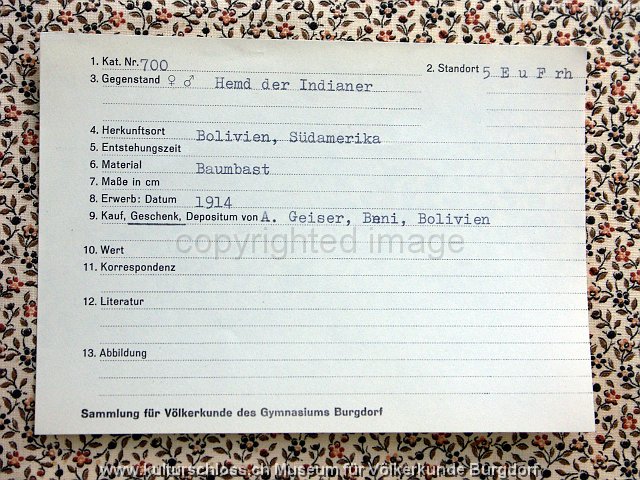 1. Kat. Nr. 700
2. Standort 5 E u F rh
3. Gegenstand ♀ ♂ Hemd der Indianer
4. Herkunftsort Bolivien, Südamerika
5. Entstehungszeit
6. Material Baumbast
7. Maße in cm
8. Erwerb: Datum 1914
9. Kauf, Geschenk, Depositum von A. Geiser, Beni, Bolivien
copyrighted image
10. Wert
11. Korrespondenz
12. Literatur
13. Abbildung
Sammlung für Völkerkunde des Gymnasiums Burgdorf
www.kulturschloss.ch Museum für Völkerkunde Burgdorf